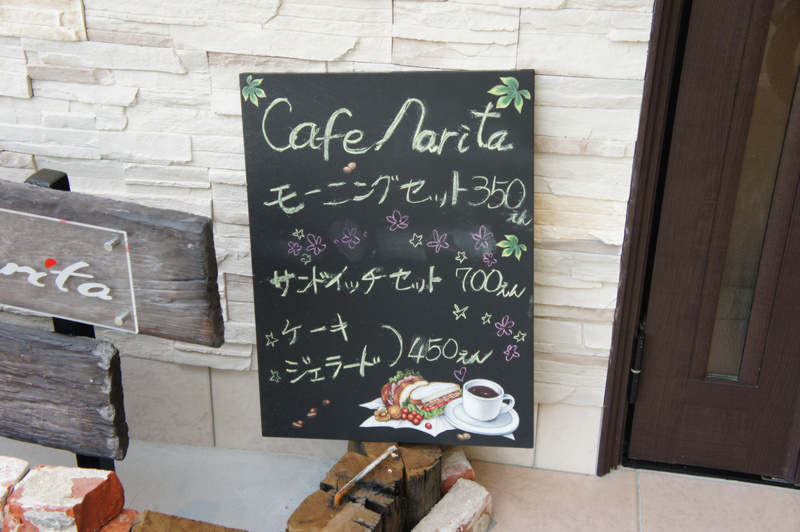 Cafe Narita
モーニングセット350えん
サンドイッチセット 700えん
ケーキ
ジェラード)450えん
arita